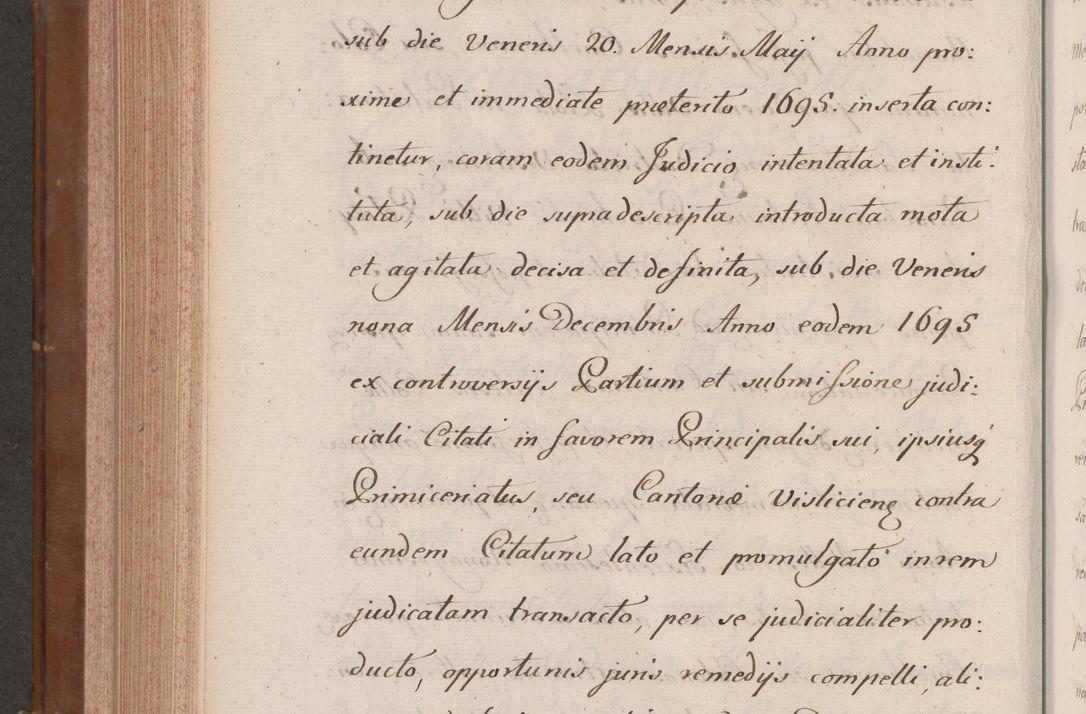 sub die Veneris 20. Mensis Maij Anno pro:
xime et immediate præterito 1695. inserta con:
tinetur, coram eodem Judicio intentata et insti:
tuta, sub die supradescripta introducta mota
et agitata decisa et definita, sub die Veneris
nona Mensis Decembris Anno eodem 1695
ex controversijs Partium et submissione judi:
ciali Citati in favorem Principalis sui, ipsiusq́
Primiceriatus, seu Cantoriæ Vislicieng contra
eundem Citatum lato et promulgato in rem
judicatam transacto, per se judicialiter pro:
ducto, opportunis juris remedijs compelli, ali: